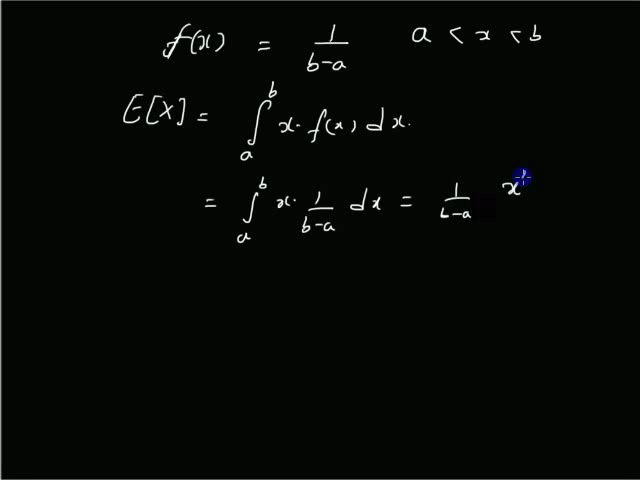 f(x) = 1/(b-a) a < x < b
E[X] = ∫_a^b x. f(x) dx.
= ∫_a^b x. 1/(b-a) dx = 1/(b-a) x